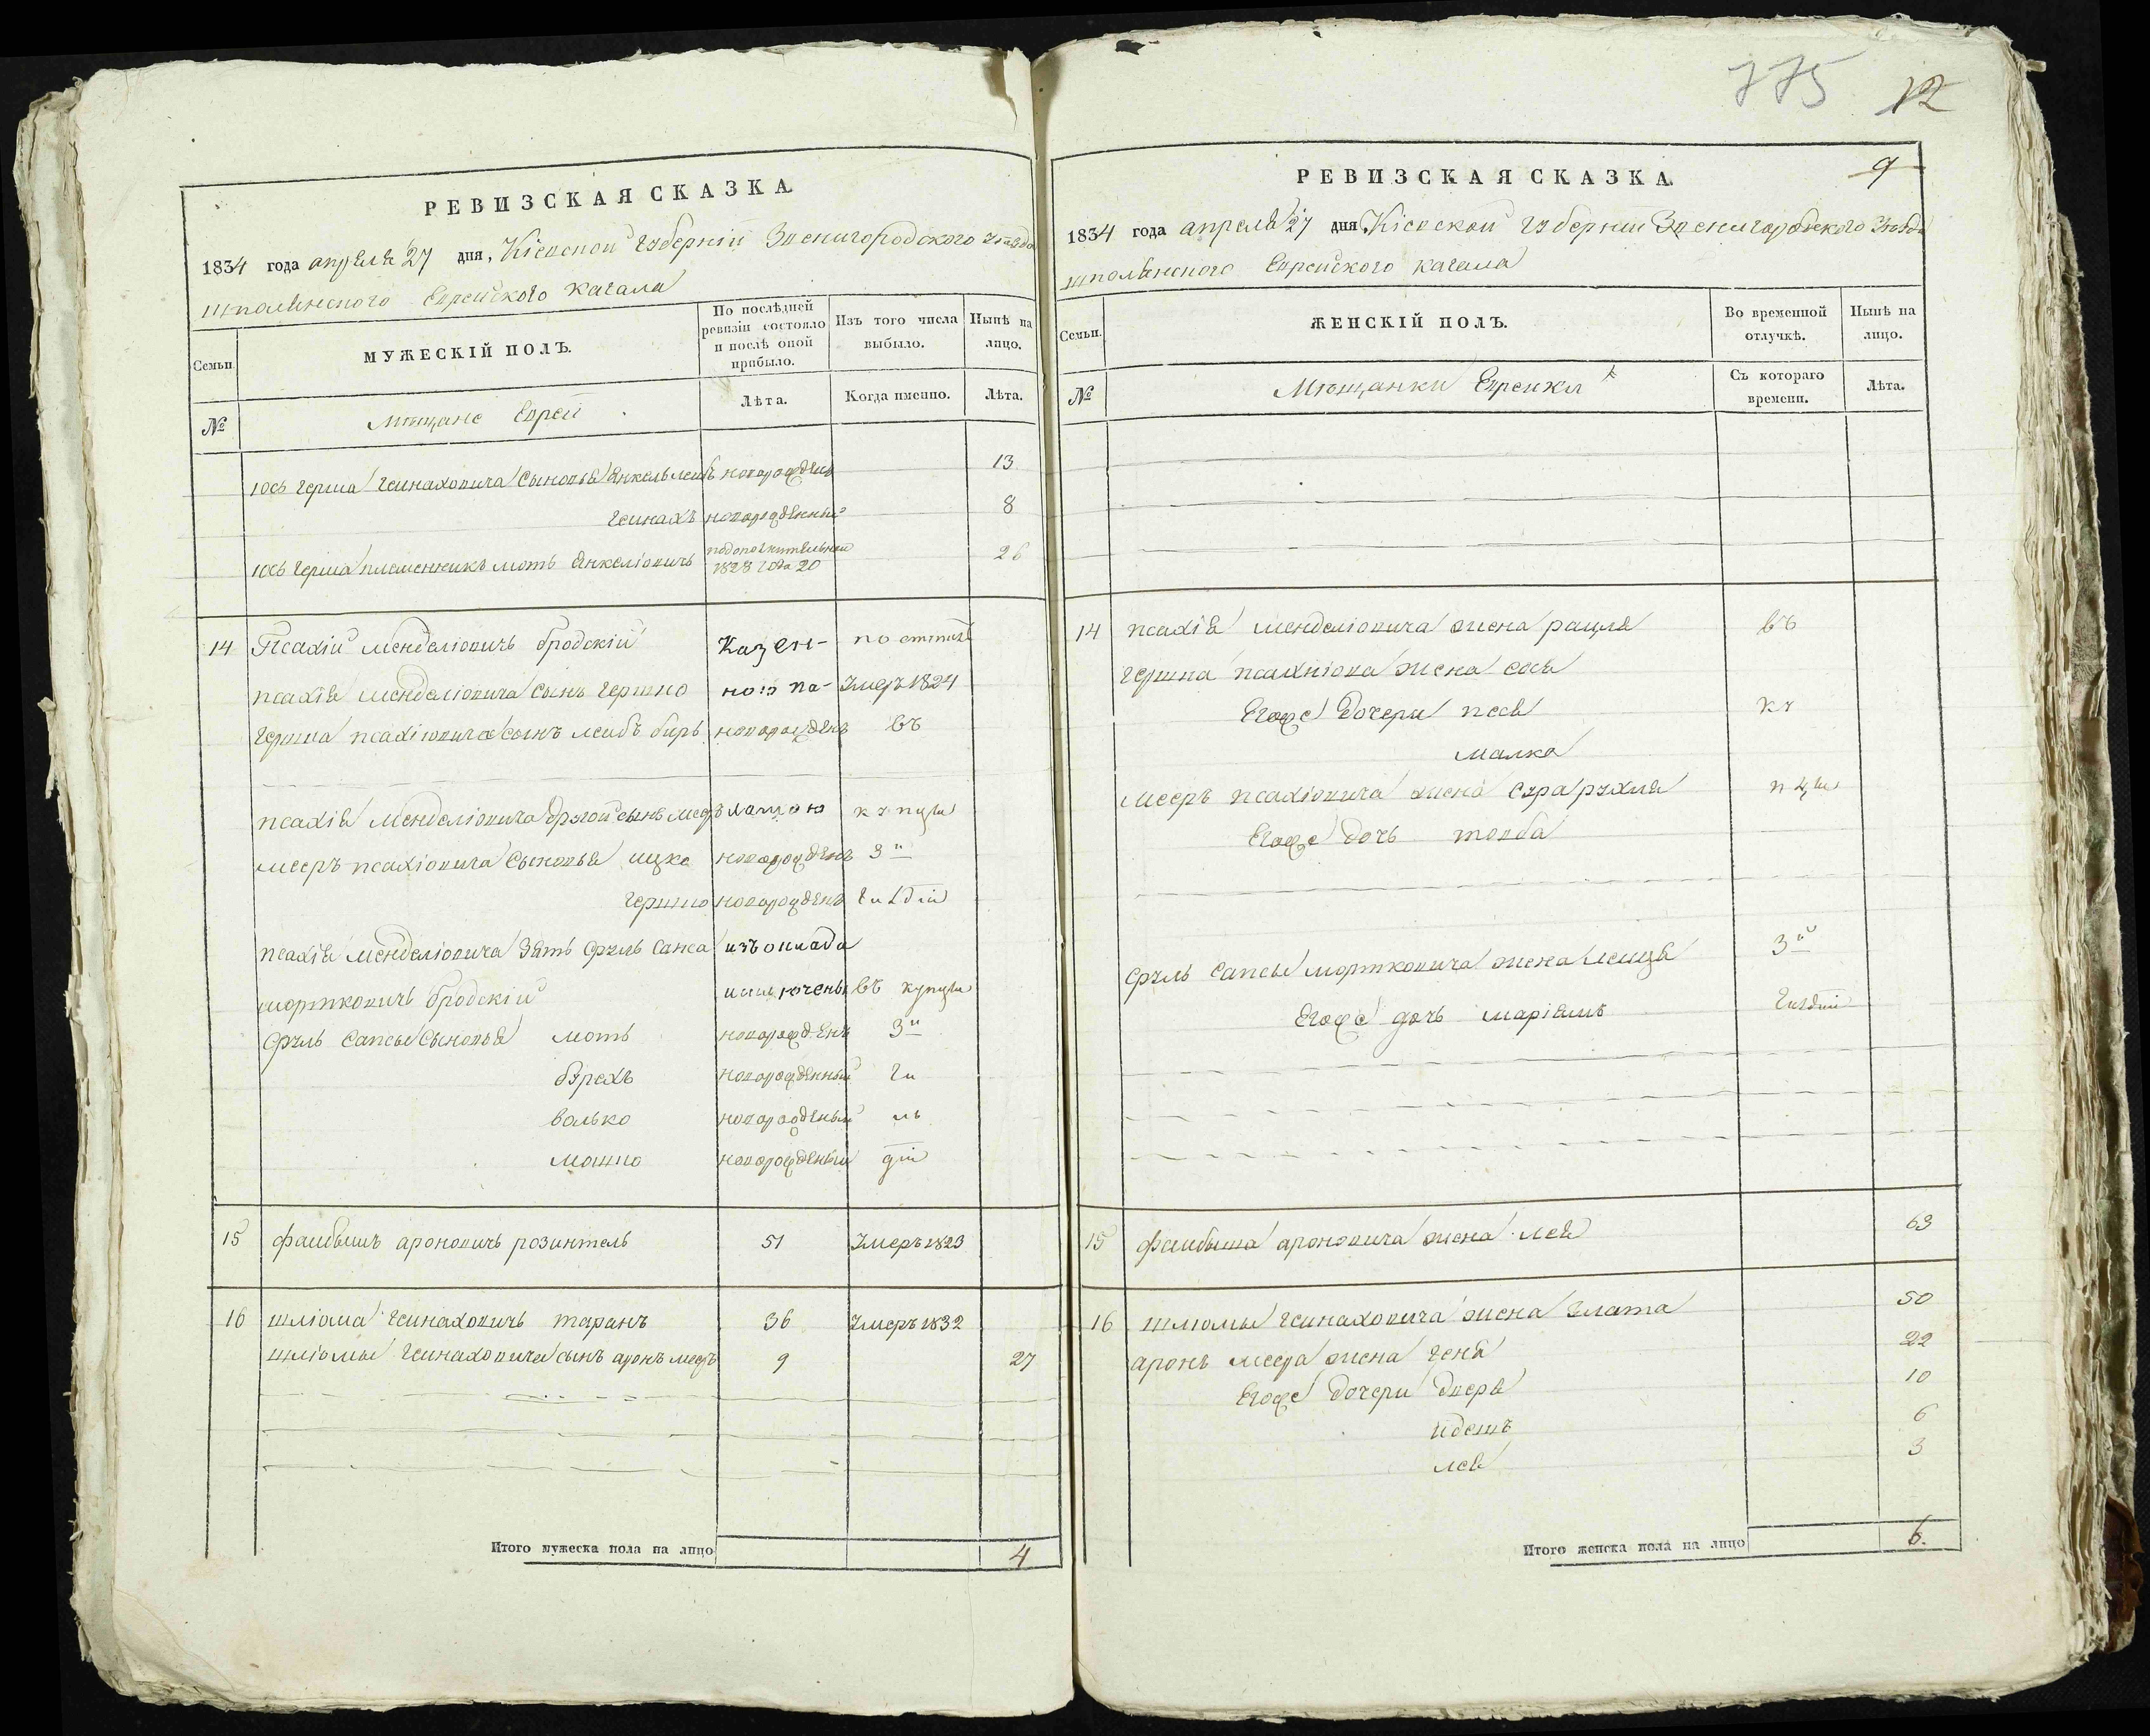 РЕВИЗСКАЯ СКАЗКА.
1834 года апреля 27 дня, Кіевской Губерніи Звенигородского уезда
шполянского Еврейского кагала
Семьи.
МУЖЕСКІЙ ПОЛЪ.
По послѣдней ревизіи состояло и послѣ оной прибыло.
Изъ того числа выбыло.
Нынѣ на лицо.
№
Мещане Евреи
Лѣта.
Когда именно.
Лѣта.
Іось герша гейнаховича сыновья Янкель лейбъ новорожденъ 13
гейнахъ новорожденный 8
Іось герша племенникъ моть Янкеліовичъ 1828 года 20 26
14 Псахій мендаліовичъ бродскій Казен-
псахія мендаліовича сынъ гершко ной па- Умеръ 1824
герша псахіовича сынъ лейбъ беръ новорожденъ въ
псахія мендаліовича другой сынъ меер латою купцы
мееръ псахіовича сыновья ицко новорожденъ 3й
гершко новорожденъ гилдіи
псахія мендаліовича зять сруль сапса изъ оклада
мортковичъ бродскій исключены въ купцы
сруль сапсы сыновья моть новорожденъ 3й
борехъ новорожденный ги
волько новорожденый ль
мошко новорожденый діи
15 файвышъ ароновичъ розинтель 51 Умеръ 1823
16 шліома гейнаховичъ таранъ 36 Умеръ 1832
шліомы гейнаховича сынъ аронъ мееръ 9 27
Итого мужеска пола на лицо 4
775 12
РЕВИЗСКАЯ СКАЗКА. 9
1834 года апреля 27 дня Кіевской Губерніи Звенигородского Уезда
шполянского Еврейского кагала
Семьи.
ЖЕНСКІЙ ПОЛЪ.
Во временной отлучкѣ.
Нынѣ на лицо.
№
Мещанки Еврейки
Съ котораго времени.
Лѣта.
14 псахія мендаліовича жена рацля въ
герша псахіова жена сося
Егоже дочери песя ку
малка
мееръ псахіовича жена сура рухля пцы
Егоже дочь товба
сруль сапсы мортковича жена 3й
Егоже дочь маріямъ гилдіи
15 файвыша ароновича жена лея 63
16 шліомы гейнаховича жена злата 50
аронъ меера жена геня 22
Егоже дочери дверя 10
идесъ 6
лея 3
Итого женска пола на лицо 6.